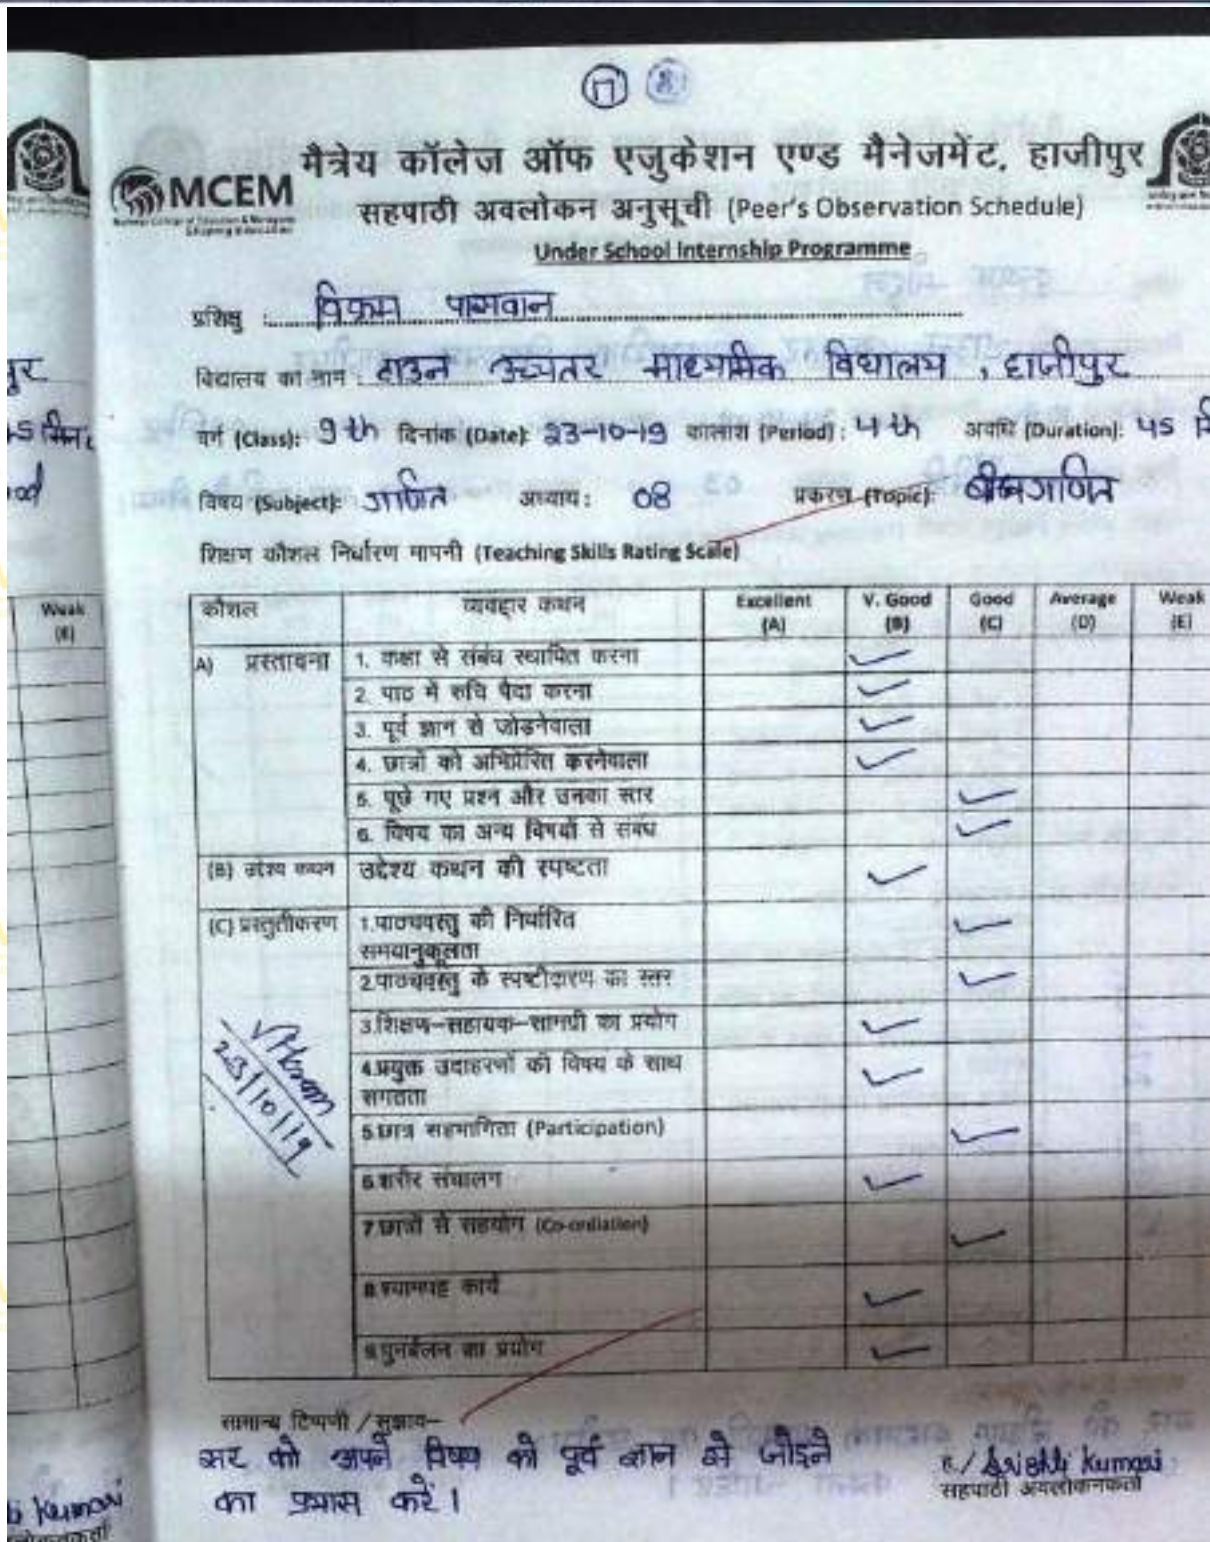 17 8
मैत्रेय कॉलेज ऑफ एजुकेशन एण्ड मैनेजमेंट, हाजीपुर
MCEM
सहपाठी अवलोकन अनुसूची (Peer's Observation Schedule)
Under School Internship Programme
प्रशिक्षु : विक्रम पासवान
विद्यालय का नाम : टाउन उच्चतर माध्यमिक विद्यालय , हाजीपुर
वर्ग (Class): 9th दिनांक (Date): 23-10-19 कालांश (Period) : 4th अवधि (Duration): 45
विषय (Subject): गणित अध्याय : 08 प्रकरण (Topic): बीजगणित
शिक्षण कौशल निर्धारण मापनी (Teaching Skills Rating Scale)
कौशल व्यवहार कथन Excellent (A) V. Good (B) Good (C) Average (D) Weak (E)
A) प्रस्तावना 1. कक्षा से संबंध स्थापित करना ✓
2. पाठ में रुचि पैदा करना ✓
3. पूर्व ज्ञान से जोडनेवाला ✓
4. छात्रों को अभिप्रेरित करनेवाला ✓
5. पूछे गए प्रश्न और उनका स्तर ✓
6. विषय का अन्य विषयों से संबंध ✓
(B) उद्देश्य कथन उद्देश्य कथन की स्पष्टता ✓
(C) प्रस्तुतीकरण 1.पाठ्यवस्तु की निर्धारित
समयानुकूलता ✓
2.पाठ्यवस्तु के स्पष्टीकरण का स्तर ✓
3.शिक्षण–सहायक–सामग्री का प्रयोग ✓
4.प्रयुक्त उदाहरणों की विषय के साथ
संगतता ✓
23/10/19
5.छात्र सहभागिता (Participation) ✓
6.शरीर संचालन ✓
7.छात्रों से सहयोग (Co-ordiation) ✓
8.श्यामपट्ट कार्य ✓
9.पुनर्बलन का प्रयोग ✓
सामान्य टिप्पणी / सुझाव–
सर को अपने विषय को पूर्व ज्ञान से जोड़ने
का प्रयास करें।
Srishti Kumari
सहपाठी अवलोकनकर्ता
Weak
(E)
Kumari